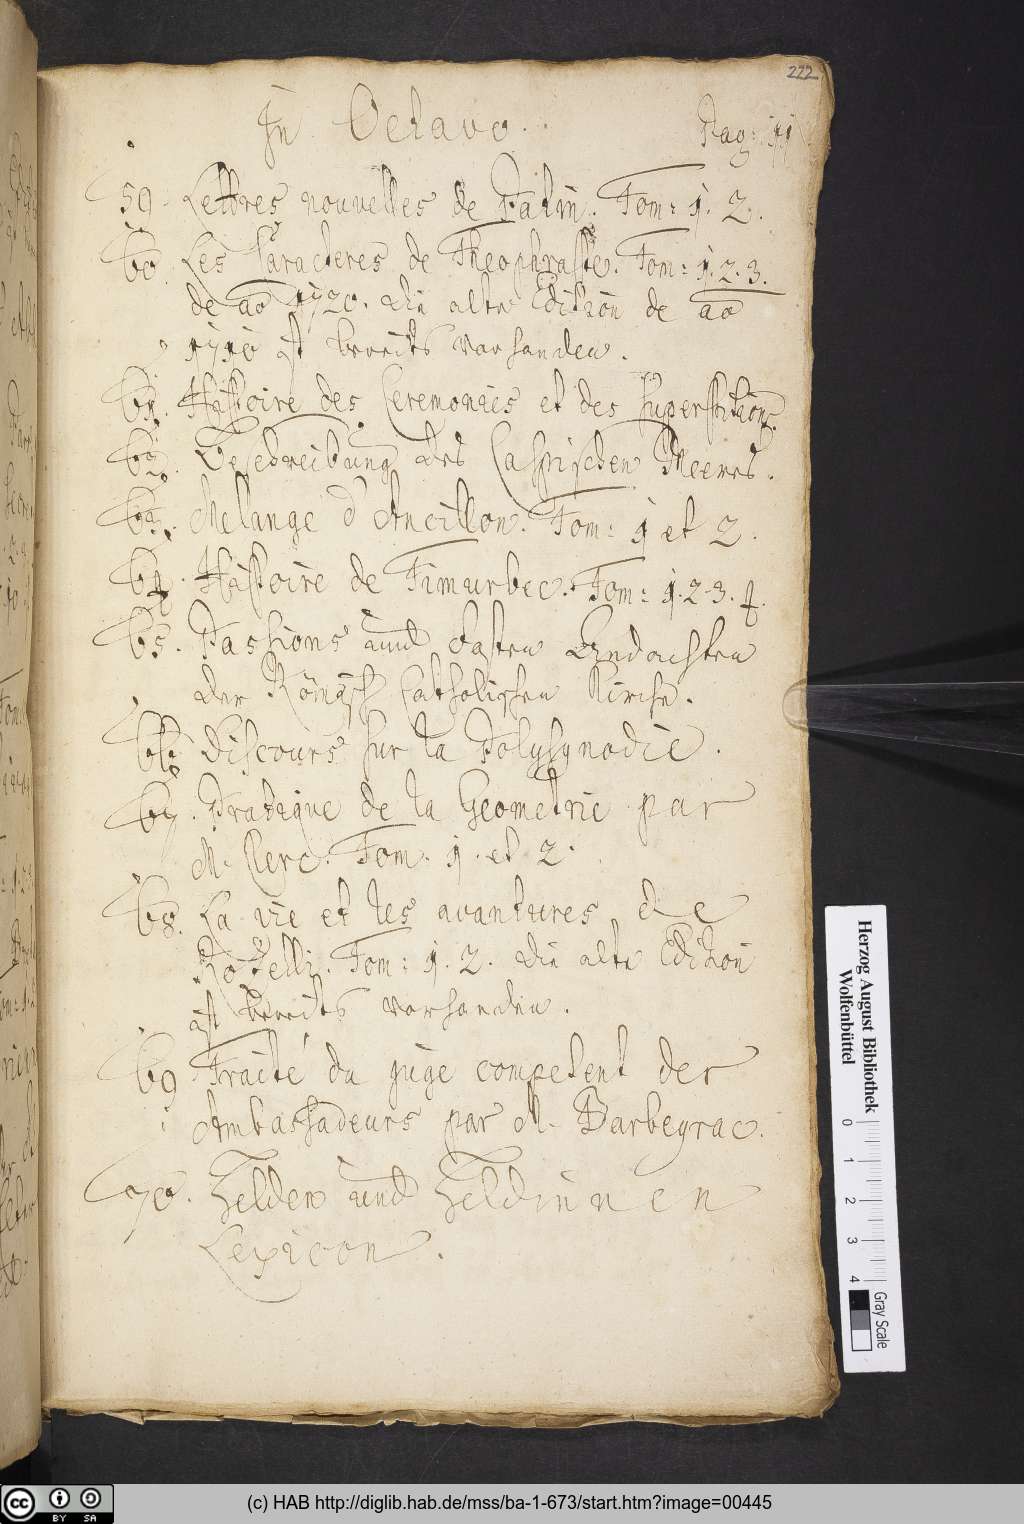 222
In Octavo.
Pag: 11
59. Lettres nouvelles de Patin. Tom: 1. 2.
60. Les Caracteres de Theophraste. Tom: 1. 2. 3.
de ao 1720. die alte Edition de ao
1710 ist bereits vorhanden.
61. Histoire des Ceremonies et des Superstitions.
62. Beschreibung des Caspischen Meeres.
63. Melange d'Ancillon. Tom: 1 et 2.
64. Histoire de Timurbec. Tom: 1. 2. 3. 4.
65. Passions und Fasten Andachten
der Römisch Catholischen Kirche.
66. Discours sur la Polysynodie.
67. Pratique de la Geometrie par
M. Clerc. Tom. 1. et 2.
68. La vie et les avantures de
Rozelli. Tom: 1. 2. die alte Edition
ist bereits vorhanden.
69. Traité du juge competent des
Ambassadeurs par M. Barbeyrac.
70. Helden und Heldinnen
Lexicon.
Herzog August Bibliothek
Wolfenbüttel
0 1 2 3 4
Gray Scale
cc BY SA
(c) HAB http://diglib.hab.de/mss/ba-1-673/start.htm?image=00445